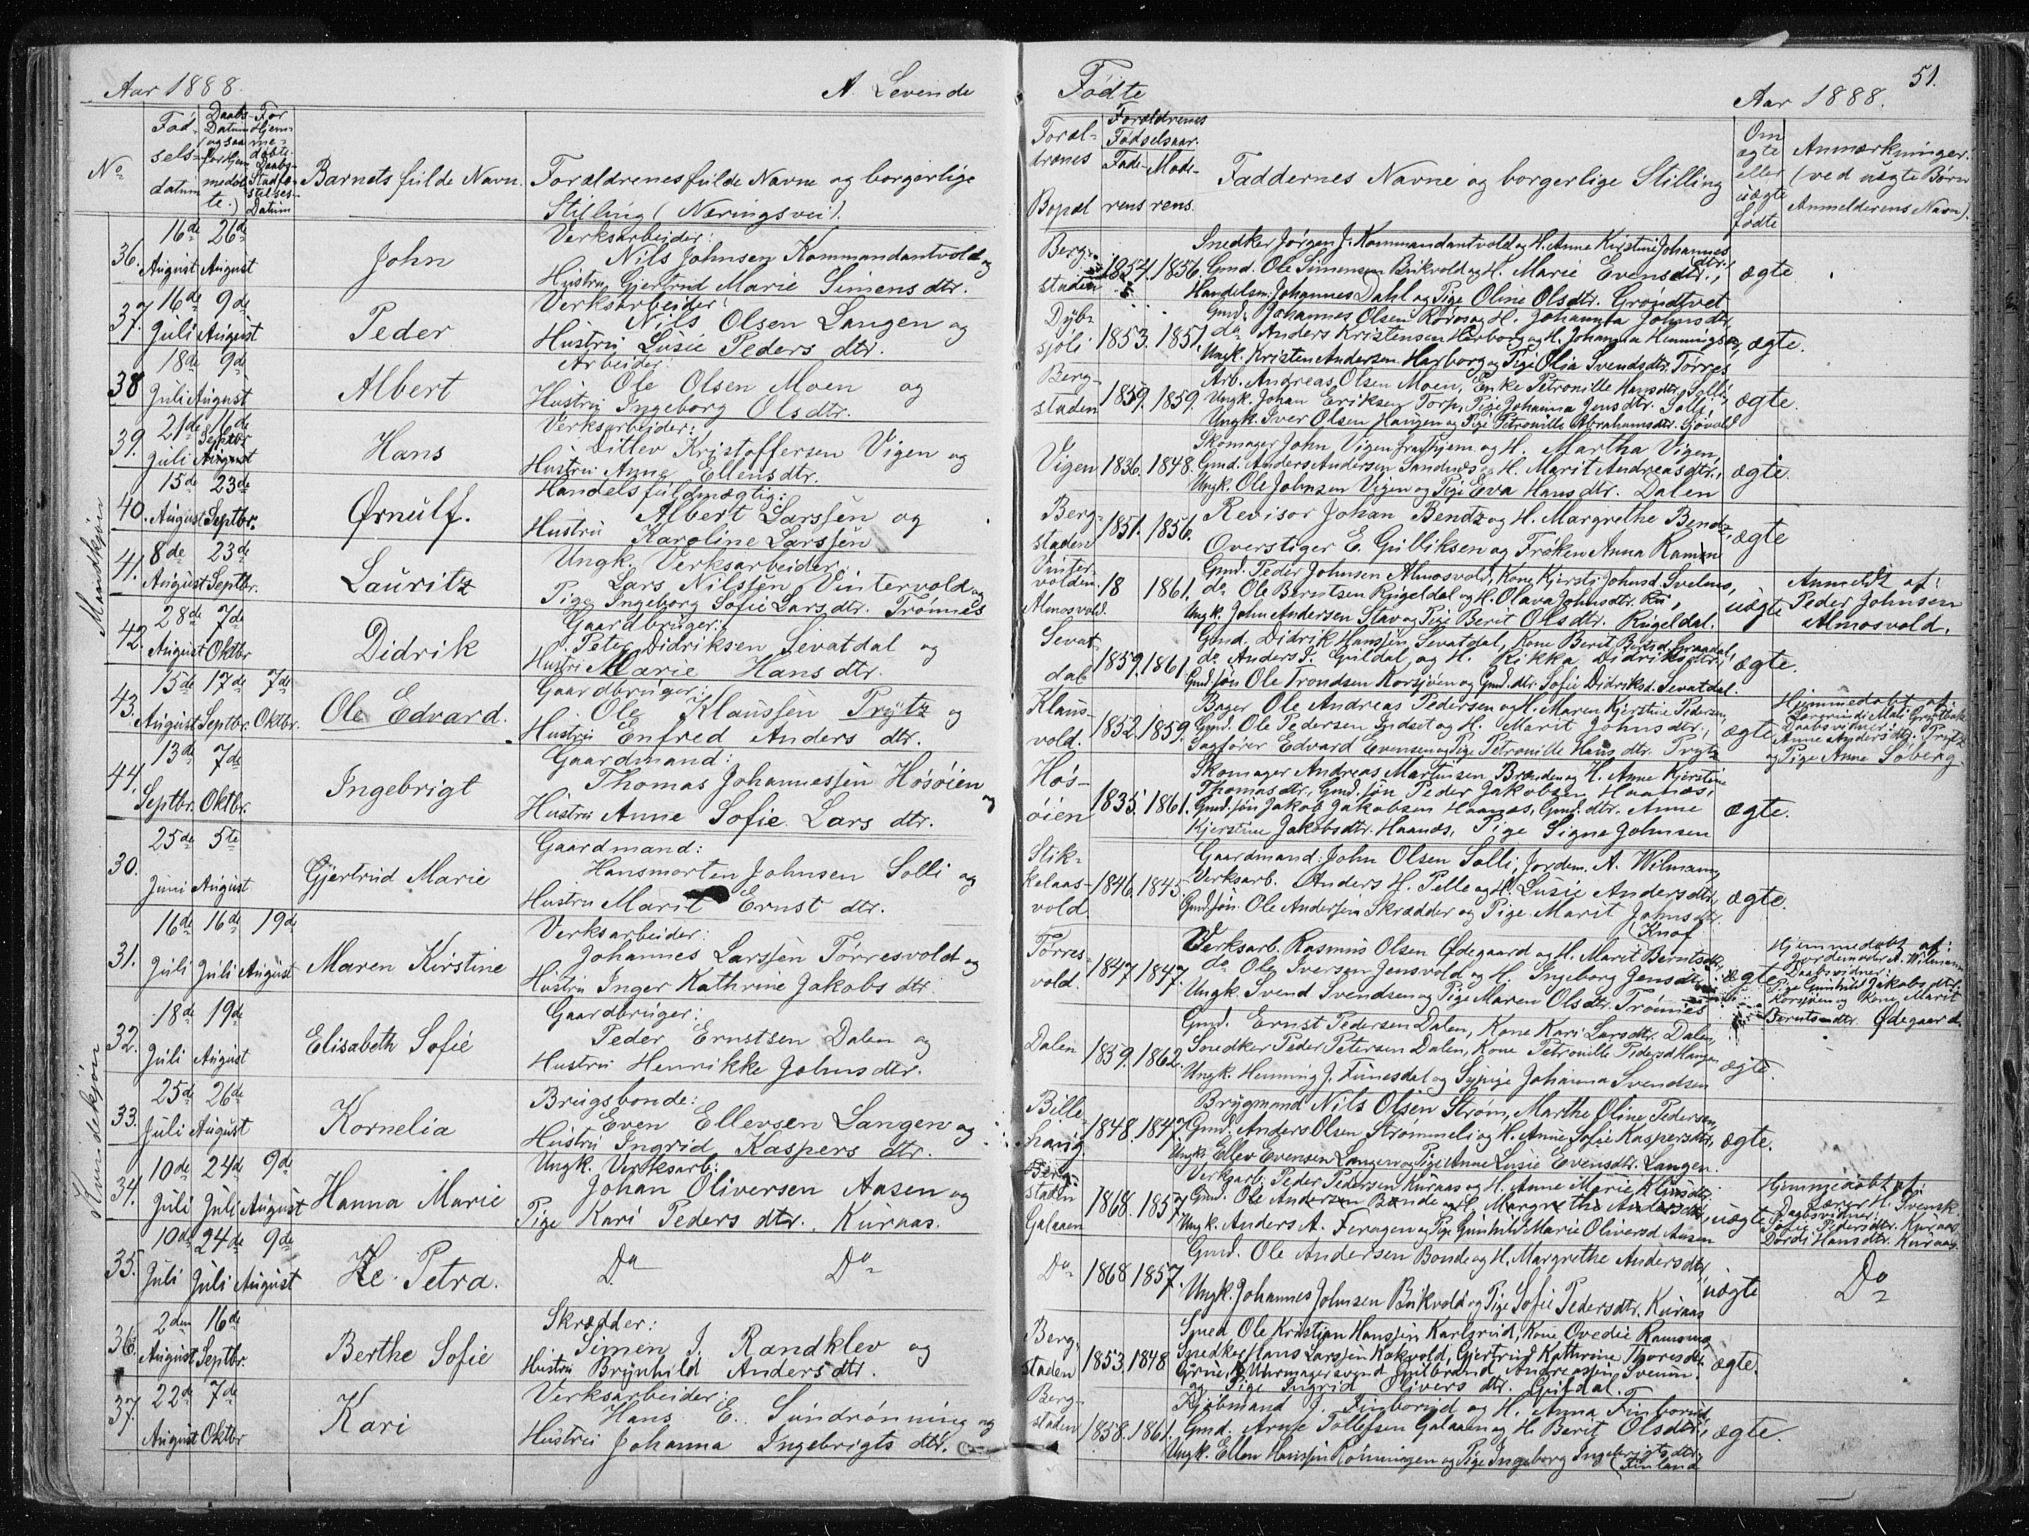 Aar 1888.
A. Levende
No
Fød-
sels-
datum
Daabs-
Datum
(ogsaa
for hjem-
medøb-
te.)
For
Hjem-
me-
døbte
Daabs-
Stadfæ-
stelses-
Datum
Barnets fulde Navn.
Forældrenes fulde Navne og borgerlige
Stilling (Næringsvei).
Mandkjøn
36. 16de August 26de August
John
Verksarbeider:
Nils Johnsen Kommandantvold og
Hustru Gjertrud Marie Simensdtr.
37. 16de Juli 9de August
Peder
Verksarbeider:
Nils Olsen Langen og
Hustru Lusie Peders dtr.
38 18de Juli 9de August
Albert
Arbeider:
Ole Olsen Moen og
Hustru Ingeborg Olsdtr.
39. 21de Juli 16de Septbr August
Hans
Verksarbeider:
Ditlev Kristoffersen Vigen og
Hustru Anne Ellensdtr.
40. 15de August 23de Septbr.
Ørnulf.
Handelsfuldmægtig:
Albert Larssen og
Hustru Karoline Larssen
41. 8de August 23de Septbr.
Lauritz
Ungk. Verksarbeider
Lars Nilssen Vintervold og
Pige Ingeborg Sofie Larsdtr. Tromnes
42. 28de August 7de Oktbr
Didrik
Gaardbruger:
Peter Didriksen Sevatdal og
Hustru Marie Hansdtr.
43. 15de August 17de Septbr. 7de Oktbr.
Ole Edvard.
Gaardbruger:
Ole Klaussen Trytz og
Hustru Enfred Anders dtr.
44. 13de Septbr. 7de Oktbr.
Ingebrigt
Gaardmand:
Thomas Johannessen Høsøien og
Hustru Anne Sofie Lars dtr.
Kvindekjøn
30. 25de Juni 5te August
Gjertrud Marie
Gaardmand:
Hansmorten Johnsen Solli og
Hustru Marit Ernst dtr.
31. 16de Juli 16de Juli 19de August
Maren Kirstine
Verksarbeider:
Johannes Larssen Tørresvold og
Hustru Inger Kathrine Jakobs dtr.
32. 18de Juli 19de August
Elisabeth Sofie
Gaardbruger:
Peder Ernstsen Dalen og
Hustru Henrikke Johnsdtr.
33. 25de Juli 26de August
Kornelia
Brugsbonde:
Even Ellevsen Langen og
Hustru Ingrid Kaspers dtr.
34. 10de Juli 24de Juli 9de August
Hanna Marie
Ungk. Verksarb:
Johan Oliversen Aasen og
Pige Kari Peders dtr. Kuraas.
35. 10de Juli 24de Juli 9de August
Petra.
Do Do
36. 2den August 16de Septbr.
Berthe Sofie
Skrædder:
Simen J. Randklev og
Hustru Brynhild Andersdtr.
37. 22de August 7de Oktbr
Kari
Verksarbeider:
Hans E. Sundrønning og
Hustru Johanna Ingebrigts dtr.
Fødte
Aar 1888.
51.
Foræl-
drenes
Bopæl
Forældrenes
Fødselsaar.
Fade-
rens
Mode-
rens.
Faddernes Navne og borgerlige Stilling
Om
ægte
eller
uægte
fødte
Anmærkninger.
(ved uægte Børn
Anmelderens Navn).
Berg-
staden
1854. 1856.
Snedker Jørgen J. Kommandantvold og H. Anne Kirstine Johannes
dtr.
Gmd. Ole Simensen Bukvold og H. Marie Evensdtr.,
Handelsm: Johannes Dahl og Pige Oline Olsdtr. Grøndtvet
ægte
Dyb-
sjöli
1853. 1851.
Gmd. Johannes Olsen Røros og H. Johanna Johnsdtr,
do Anders Kristensen Harborg og H. Johanna Hennings
Ungk. Kristen Andersen Harborg og Pige Olia Svendsdtr. Tørres
ægte.
Berg-
staden
1859. 1859.
Arb. Andreas Olsen Moen, Enke Petronille Hansdtr. Solli,
Ungk. Johan Eriksen Torp, Pige Johanna Jensdtr. Solli
Ungk. Iver Olsen Haugen og Pige Petronille Abrahamsdtr. Sjøvold
ægte.
Vigen
1836. 1848.
Skomager John Vigen og H. Martha Vigen,
Gmd. Anders Andersen Sandnæs og H. Marit Andreasdtr.,
Ungk. Ole Johnsen Vigen og Pige Eva Hansdtr. Dalen
ægte.
Berg-
staden
1851. 1856.
Revisor Johan Bendz og H. Margrethe Bendz,
Overstiger E. Gulliksen og Frøken Anna Ramm
ægte
Vinter-
volden.
Almosvold.
18 1861.
Gmd. Peder Johnsen Almosvold, Kone Kjersti Johnsd. Svelmo,
do Ole Berntsen Rugeldal og H. Olava Johnsdtr. Ru,
Ungk. John Andersen Slav og Pige Berit Olsdtr. Rugeldal.
uægte
Anmeldt af:
Peder Johnsen
Almosvold.
Sevat
dal
1859. 1861.
Gmd. Didrik Hanssen Sevatdal, Kone Berit
do Anders J. Guldal, og H. Rikka Didriksdtr,
Gmd. søn Ole Trondsen Korsjøen og Gmd. dtr. Sofie Didriksd. Sevatdal.
ægte.
Klaus-
vold.
1852. 1859.
Bager Ole Andreas Pedersen og H. Maren Kjerstine Pedersen,
Gmd. Ole Pedersen Indset og H. Marit Johnsdtr.,
Sagfører Edvard Evensen og Pige Petronille Hansdtr. Trytz
ægte.
Hjemmedøbt af:
Daabsvidner:
Anne Andersdtr. Trytz
og Pige Anne Søberg
Høs-
øien
1835. 1861.
Skomager Andreas Martinsen Brænden og H. Anne Kjerstine
Thomasdtr., Gmd. søn Peder Jakobsen Haanæs,
Gmd. søn Jakob Jakobsen Haanæs, Gmd. dtr. Anne
Kjerstine Jakobsdtr. Haanæs, Pige Signe Johnsen
ægte.
Stik-
kelaas-
vold
1846. 1845.
Gaardmand: John Olsen Solli, Jordem. A. Wilmann,
Verksarb. Anders H. Pelle og H. Lusie Andersdtr,
Gmd. søn. Ole Anderssen Skrædder og Pige Marit Johnsdtr.
(Knof
ægte.
Tørres-
vold.
1847. 1847.
Verksarb. Rasmus Olsen Ødegaard og H. Marit Berntsdtr,
do Ole Iversen Jensvold og H. Ingeborg Jensdtr.
Ungk. Svend Svendsen og Pige Maren Olsdtr. Tromnes
ægte
Hjemmedøbt af:
Jordemoder A. Wilmann
Daabsvidner:
Pige Gunhild Jakobsdtr.
Korssjøen og Kone Marit
Berntsdtr. Ødegaard.
Dalen
1859. 1862.
Gmd. Ernst Pedersen Dalen, Kone Kari Larsdtr. Dalen,
Snedker Peder Petersen Dalen, Kone Petronille Pedersd Haugen,
Ungk. Henning J. Funesdal og Sypige Johanna Svendsen
ægte.
Bille-
haug
1848. 1847.
Brygmand Nils Olsen Strøm, Marthe Oline Pedersen,
Gmd. Anders Olsen Strømmeli og H. Anne Sofie Kaspersdtr,
Ungk. Ellev Evensen Langen og Pige Anne Lusie Evensdtr. Langen.
ægte.
Berg-
staden
Galaaen
1868. 1857.
Verksarb. Peder Pedersen Kuraas og H. Anne Marie Klausdtr.
Gmd. Ole Andersen Bonde og H. Margrethe Andersdtr,
Ungk. Anders A. Feragen og Pige Gunhild Marie Oliversd Aasen
uægte
Hjemmedøbt af:
Lærer H. Svensk.
Daabsvidner:
Sofie Pedersdtr. Kuraas
Dordi Hansdtr. Kuraas.
Do
1868 1857.
Gmd. Ole Andersen Bonde og H. Margrethe Andersdtr,
Ungk. Johannes Johnsen Bukvold og Pige Sofie Pedersdtr. Kuraas
uægte
Do
Berg-
staden
1853. 1848
Smed Ole Kristian Hanssen Karlsrud, Kone Ovedie Ramsmo
Snedker Hans Larssen Kokvold, Gjertrud Kathrine Thoresdtr
Grue, Uhrmagersvend Gulbrand Andreassen Sveum
og Pige Ingrid Olivers dtr. Gufdal.
ægte.
Berg-
staden
1858. 1861.
Kjøbmand J. Finborud og H. Anna Finborud,
Gmd. Arne Tollefsen Galaaen og H. Berit Olsdtr,
Ungk. Ellen Hanssen Rønningen og Pige Ingeborg Ingebrigtsdtr.
(Finland
ægte.